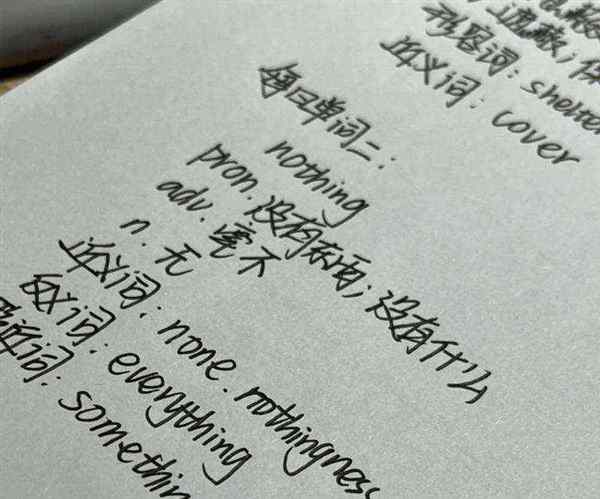 遮蔽；
形容词：shelte
近义词：cover
每日单词二：
nothing
pron. 没有东西；没有什么
adv. 毫不
n. 无
近义词：none. nothingness
反义词：everything
近词：somethin